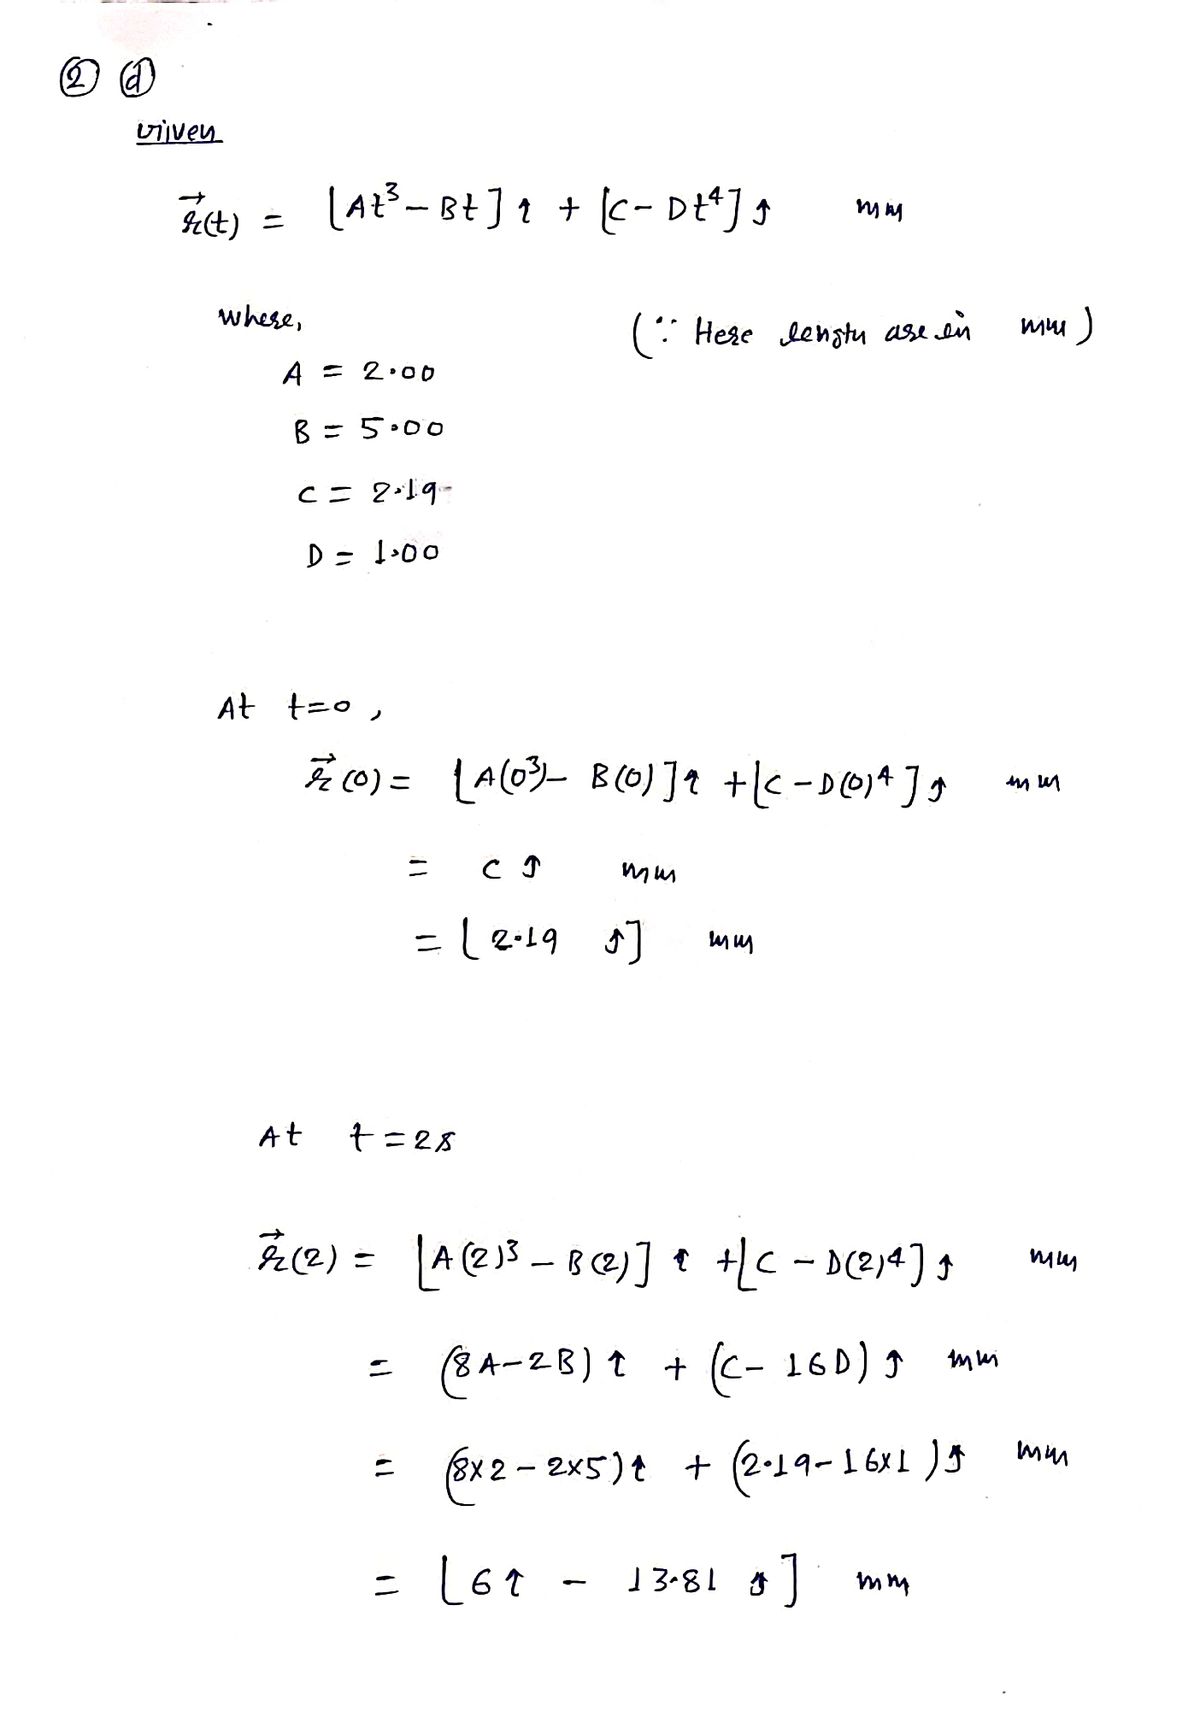 ② ⓓ
Given
r⃗(t) = [At³ − Bt] î + [C − Dt⁴] ĵ mm
where,
(∵ Here length are in mm)
A = 2.00
B = 5.00
C = 2.19
D = 1.00
At t=0,
r⃗(0) = [A(0³) − B(0)] î + [C − D(0)⁴] ĵ mm
= C ĵ mm
= [2.19 ĵ] mm
At t = 2s
r⃗(2) = [A(2)³ − B(2)] î + [C − D(2)⁴] ĵ mm
= (8A − 2B) î + (C − 16D) ĵ mm
= (8×2 − 2×5) î + (2.19 − 16×1) ĵ mm
= [6 î − 13.81 ĵ] mm